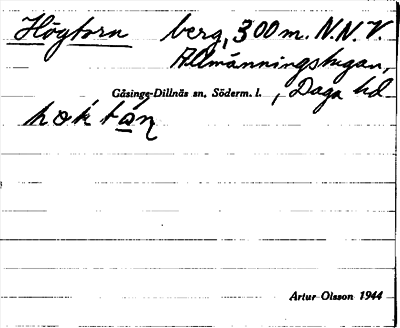 Högtorn berg, 300 m. N.N.V.
Allmänningstugan,
Gåsinge-Dillnäs sn, Söderm. l. , Daga hd
hoktån
Artur Olsson 1944